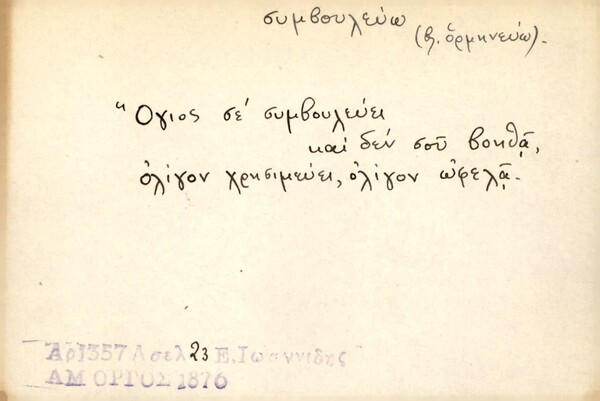 συμβουλεύω
(βλ. ὁρμηνεύω).
"Όγιος σέ συμβουλεύει
καί δέν σοῦ βοηθᾷ,
ὀλίγον χρησιμεύει, ὀλίγον ὠφελᾷ.
Αρ 1357 Α σελ 23 Ε. Ιωαννιδης
ΑΜΟΡΓΟΣ 1876